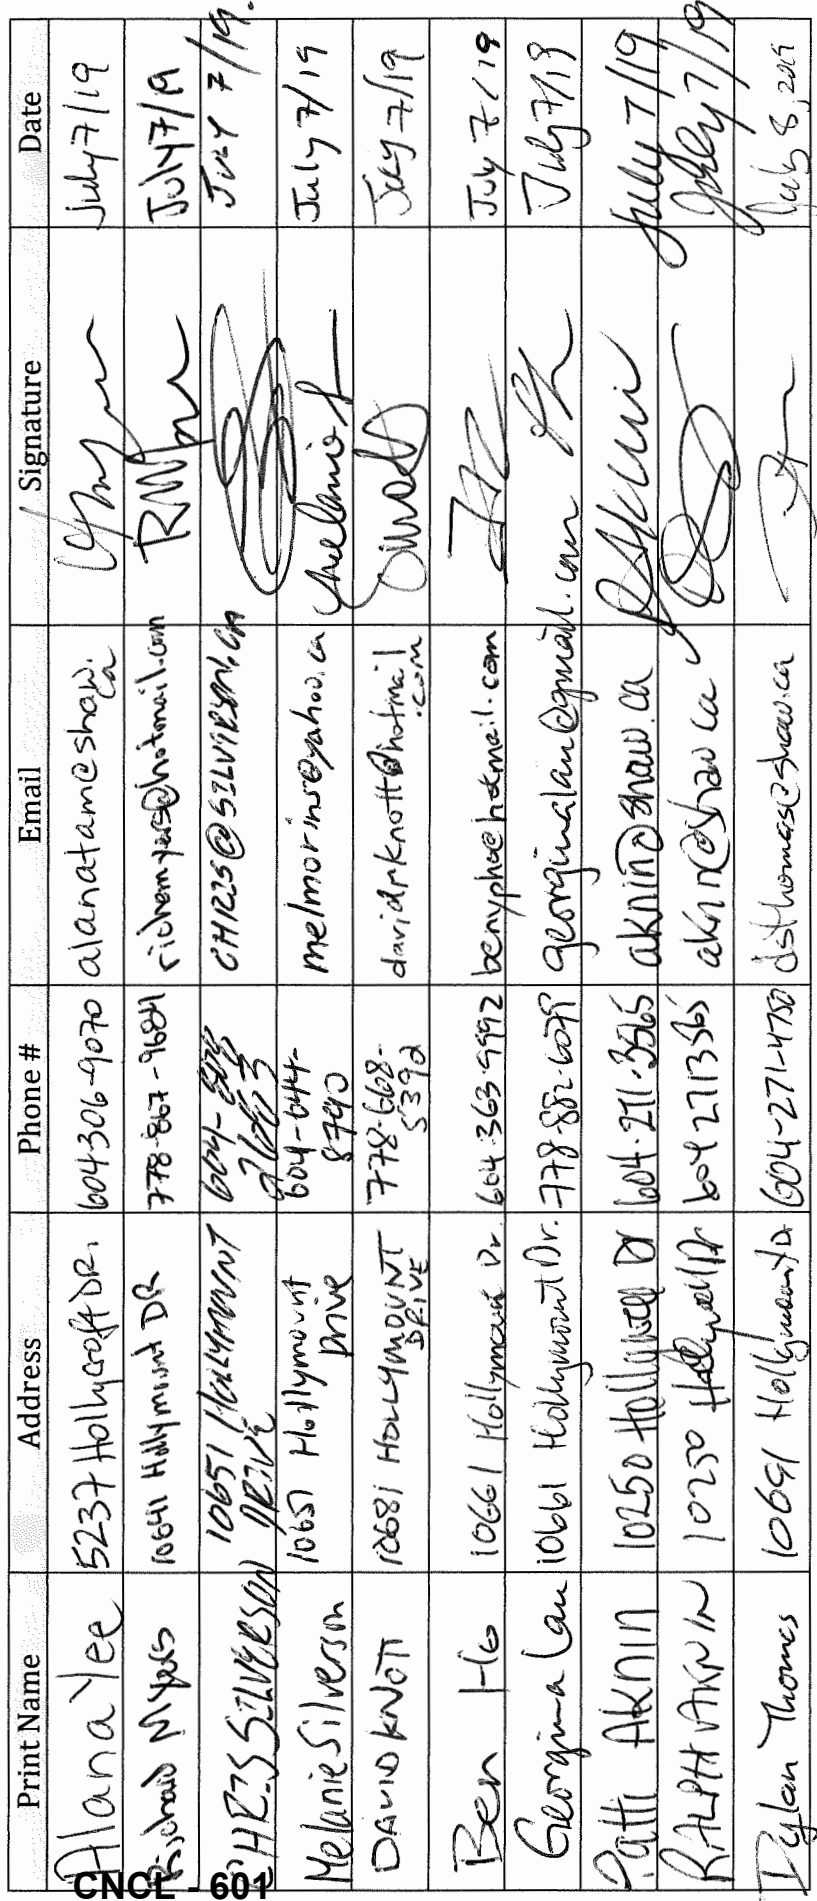 Print Name Address Phone # Email Signature Date
Alana Yee 5237 Hollycroft DR. 604 306-9070 alanatam@shaw.ca July 7/19
Richard Myers 10641 Hollymount DR 778-867-9684 richemyers@hotmail.com July 7/19
CHRIS SILVERSON 10651 HOLLYMOUNT DRIVE 604- CHRIS@SILVERSON.CA JULY 7/19.
Melanie Silverson 10651 Hollymount Drive 604-644-8790 melmorins@yahoo.ca July 7/19
DAVID KNOTT 10681 HOLLYMOUNT DRIVE 778-668-5392 davidrknott@hotmail.com July 7/19
Ben Ho 10661 Hollymount Dr. 604-363-9992 benypho@hotmail.com July 7/19
Georgina Lau 10661 Hollymount Dr. 778-882-6099 georginalau@gmail.com July 7/19
Patti AKNIN 10250 Hollywell Dr 604-271-3565 aknin@shaw.ca July 7/19
RALPH AKNIN 10250 Hollywell Dr 604 271 3565 aknin@shaw ca July 7/19
Dylan Thomas 10691 Hollymount Dr 604-271-4750 dsthomas@shaw.ca July 8, 2019
CNCL - 601